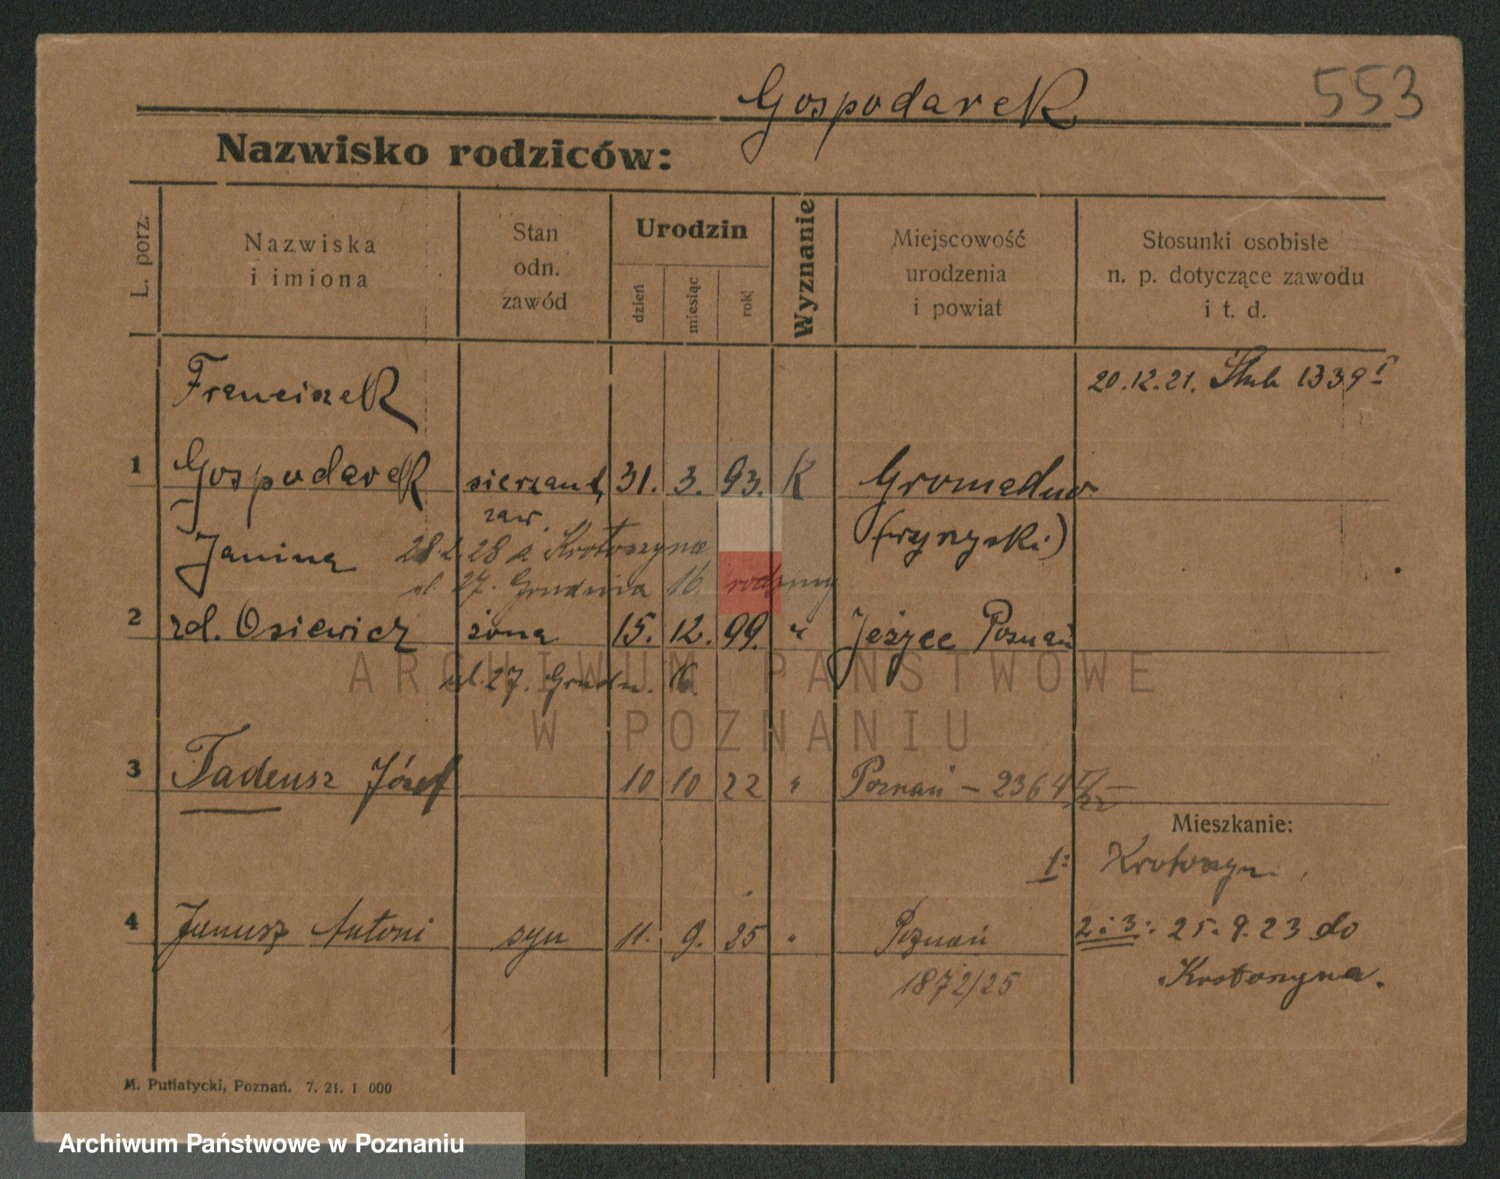 Gospodarek 553
Nazwisko rodziców:
L. porz.
Nazwiska
i imiona
Stan
odn.
zawód
Urodzin
dzień
miesiąc
rok
Wyznanie
Miejscowość
urodzenia
i powiat
Stosunki osobiste
n. p. dotyczące zawodu
i t. d.
Franciszek 20.12.21. Ślub 1339
1 Gospodarek sierżant 31. 3. 93. K Gromadno
zaw. (wyrzyski)
Janina 28 z Krotoszyna
ul. 27. Grudnia 16 rodziny
2 zd. Osiewicz żona 15. 12. 99. " Jeżyce Poznań
ul. 27. Grudn. 16.
ARCHIWUM PAŃSTWOWE
W POZNANIU
3 Tadeusz Józef 10 10 22 " Poznań – 2364
Mieszkanie:
1: Krotoszyn
4 Janusz Antoni syn 11. 9. 25 " Poznań 2 i 3: 25. 9. 23 do
1872/25 Krotoszyna.
M. Putiatycki, Poznań. 7. 21. 1 000
Archiwum Państwowe w Poznaniu